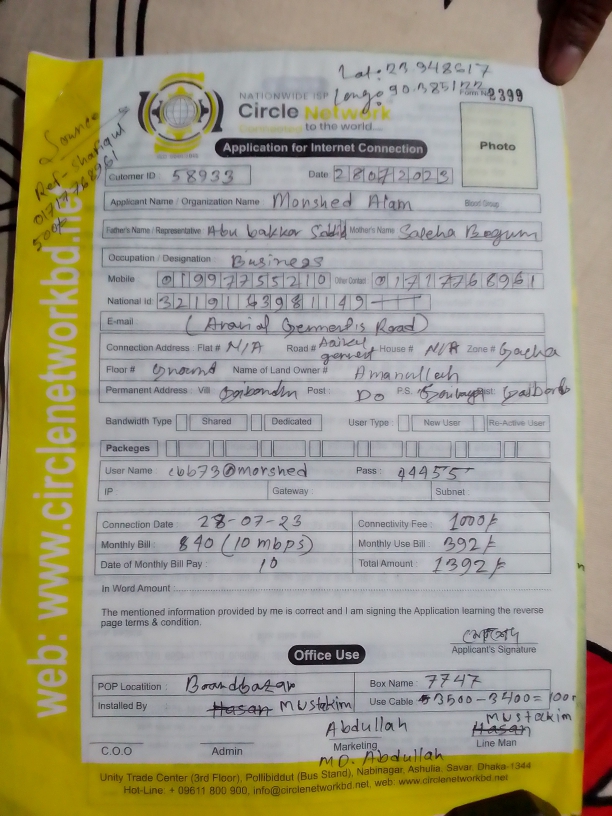 Lat: 23.948617
Long: 90.385122
Form No 2399
NATIONWIDE ISP
Circle Network
Connecting to the world....
Source
Ref- Shafiqul
01717768961
500/
Application for Internet Connection
Photo
Cutomer ID : 58933 Date 28072023
Applicant Name / Organization Name : Morshed Alam Blood Group
Father's Name / Representative : Abu bakkar Siddik Mother's Name : Saleha Begum
Occupation / Designation : Business
Mobile 01997755210 Other Contact 01717768961
National Id: 3219143981149
E-mail : Road)
Connection Address : Flat # N/A Road # House # N/A Zone # Gacha
Floor # Ground Name of Land Owner # Amanullah
Permanent Address : Vill Post : Do P.S.
Bandwidth Type Shared Dedicated User Type : New User Re-Active User
Packeges
User Name cbb73@morshed Pass : 44455
IP Gateway : Subnet :
Connection Date 28-07-23 Connectivity Fee : 1000/
Monthly Bill : 840 (10 mbps) Monthly Use Bill : 392/
Date of Monthly Bill Pay : 10 Total Amount : 1392/
In Word Amount :
The mentioned information provided by me is correct and I am signing the Application learning the reverse
page terms & condition.
মোরশেদ
Applicant's Signature
Office Use
POP Locatition : Boardbazar Box Name : 7747
Installed By Hasan Mustakim Use Cable 3500-3400=100m
Abdullah Mustakim
Hasan
C.O.O Admin Marketing Line Man
MD. Abdullah
Unity Trade Center (3rd Floor), Pollibiddut (Bus Stand), Nabinagar, Ashulia, Savar, Dhaka-1344
Hot-Line: + 09611 800 900, info@circlenetworkbd.net, web: www.circlenetworkbd.net
web: www.circlenetworkbd.net